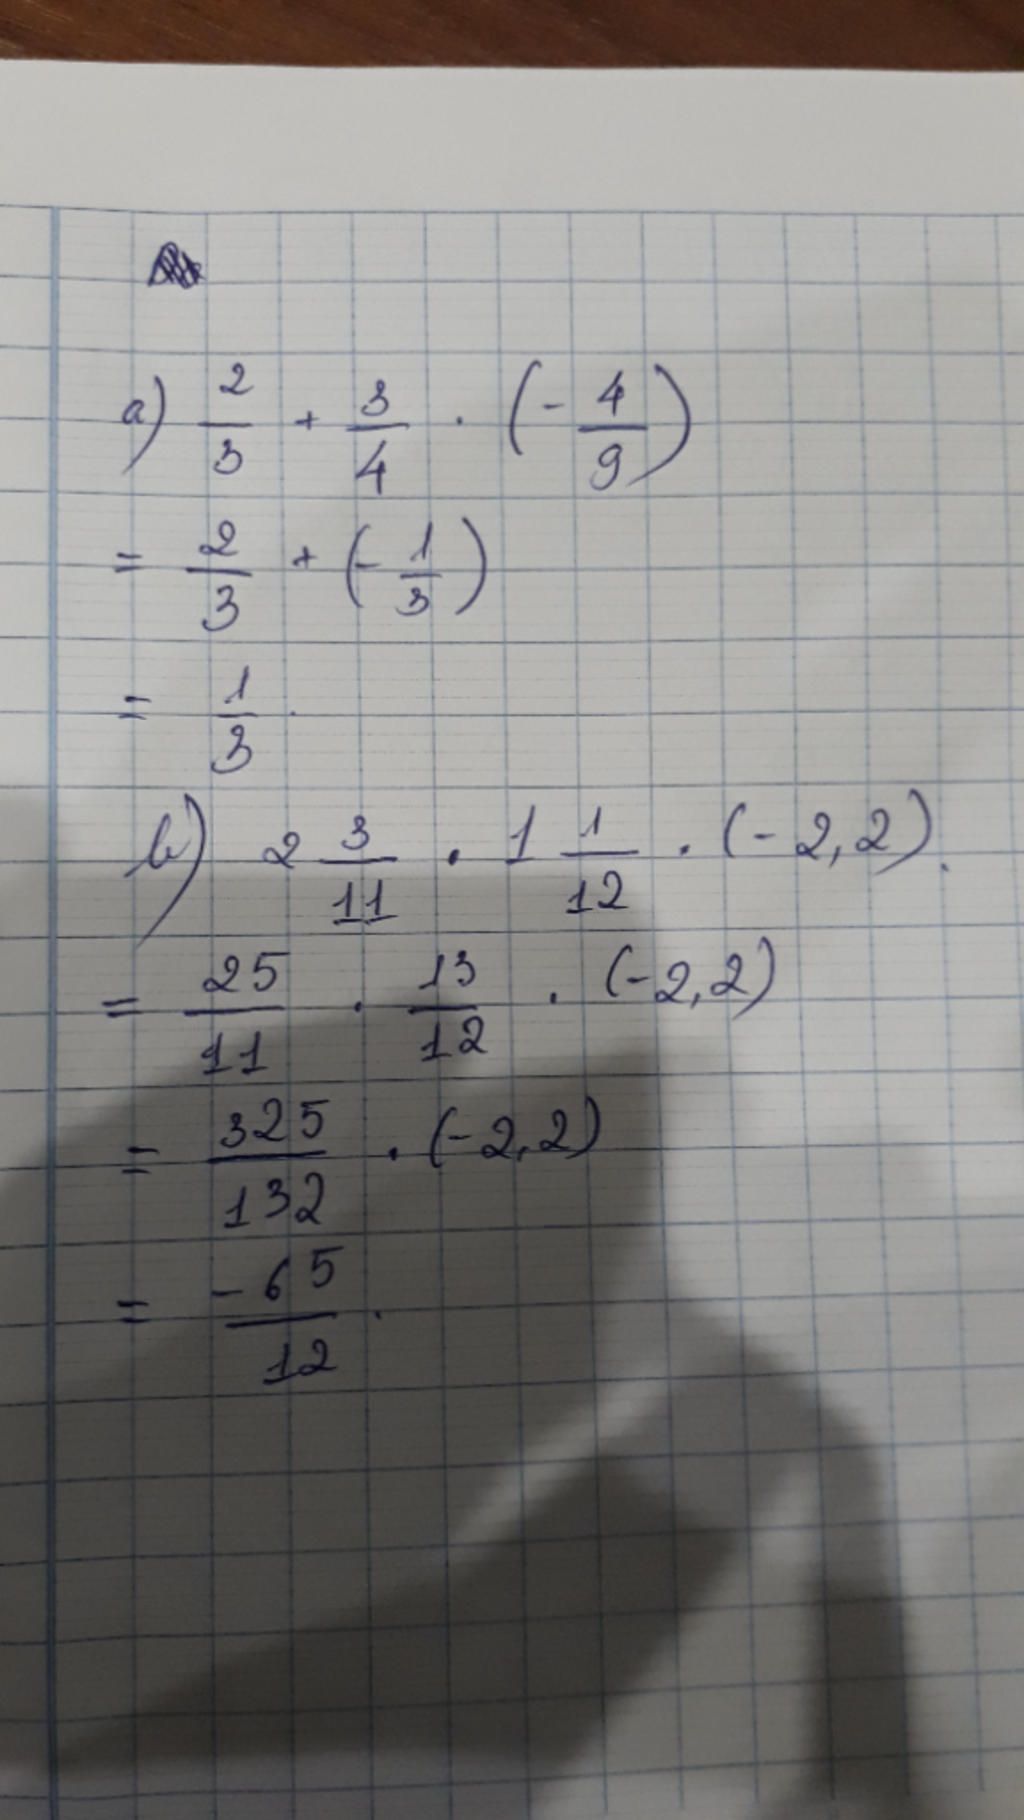 a) 2/3 + 3/4 . (- 4/9)
= 2/3 + (- 1/3)
= 1/3 .
b) 2 3/11 . 1 1/12 . (- 2,2).
= 25/11 . 13/12 . (-2,2)
= 325/132 . (-2,2)
= -65/12 .